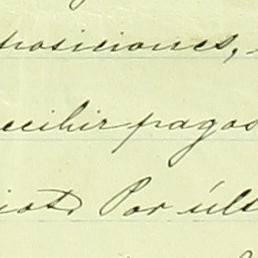 posiciones,
recibir pagos
Por últ